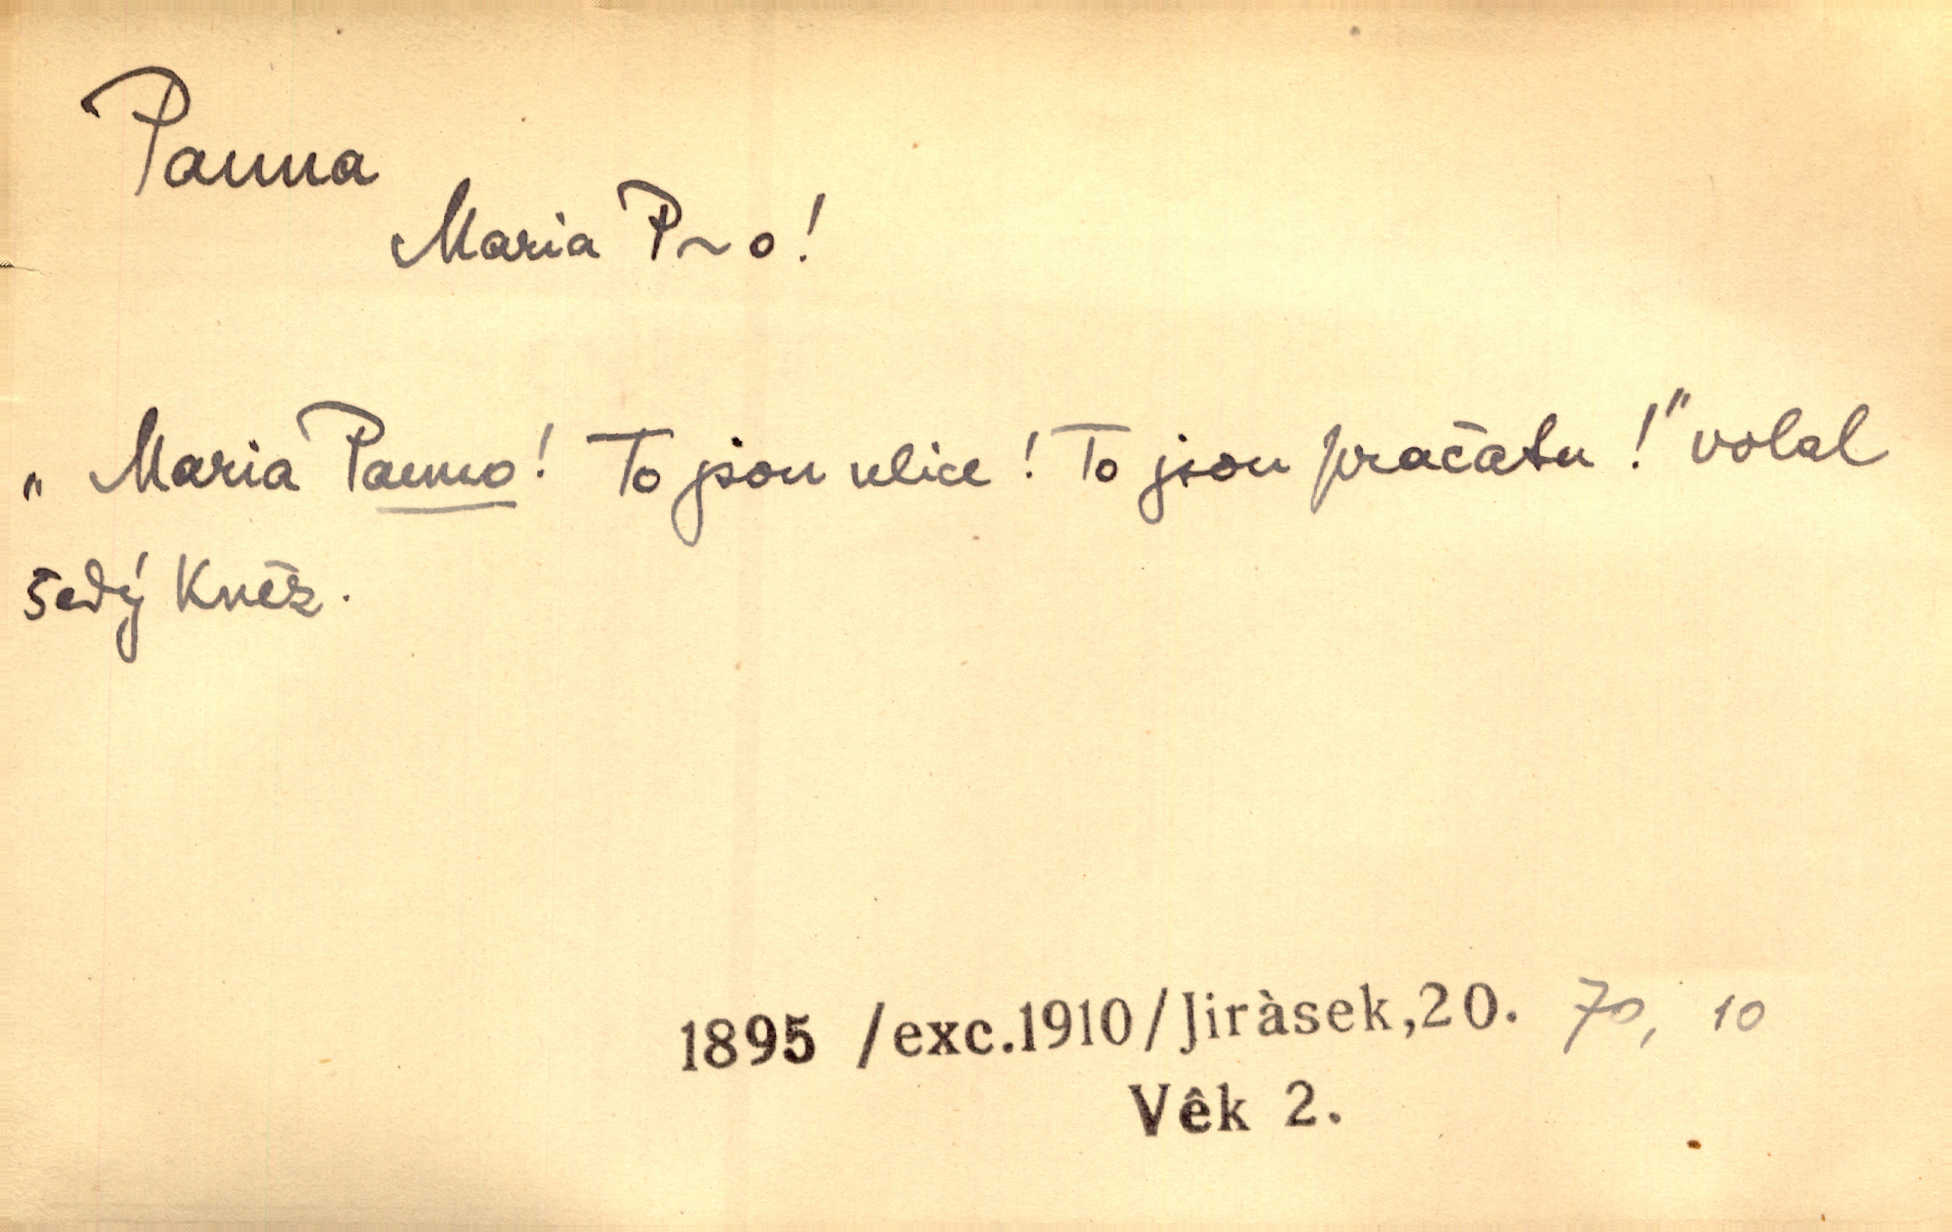 Panna
Maria P~o!
„Maria Panno! To jsou ulice! To jsou pračata!" volal
šedý Kněz.
1895 /exc.1910/Jiràsek,20. 70, 10
Vêk 2.